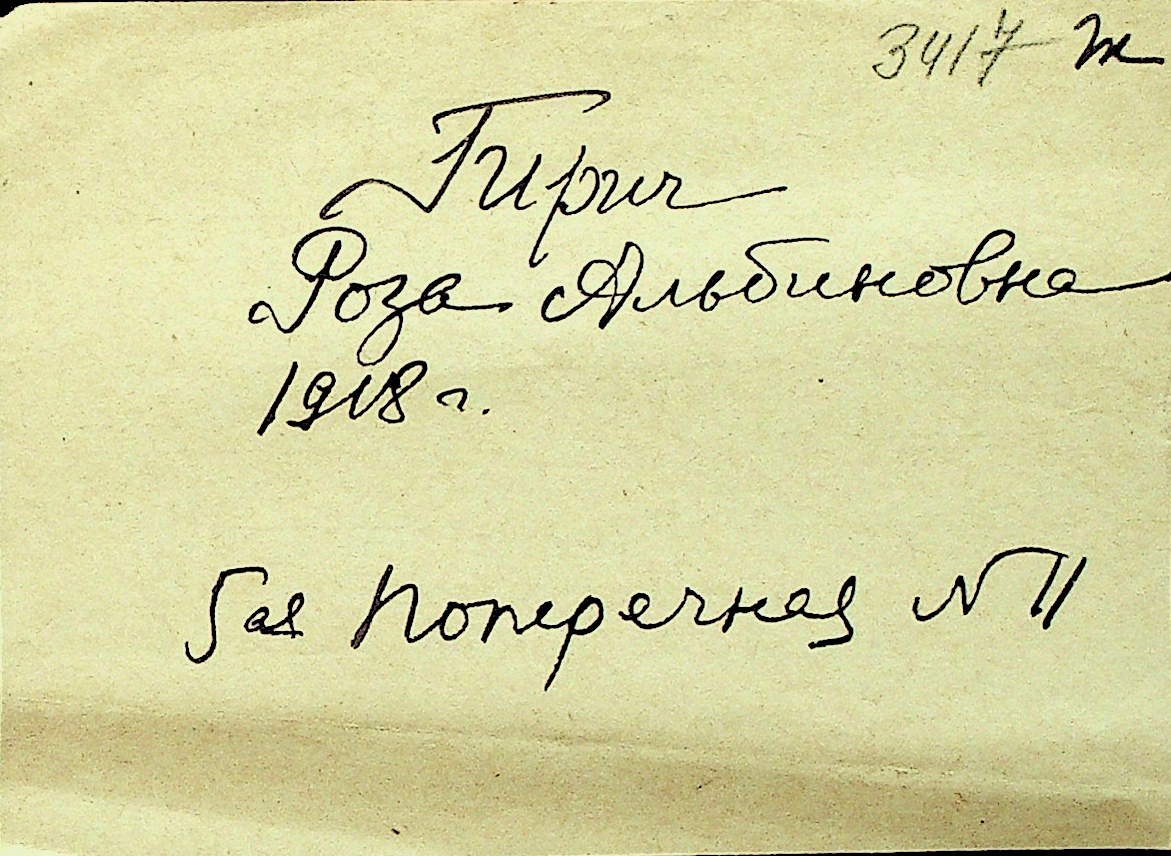 3417 т
Гирич
Роза Альбиновна
1918 г.
5ая Поперечная № 11